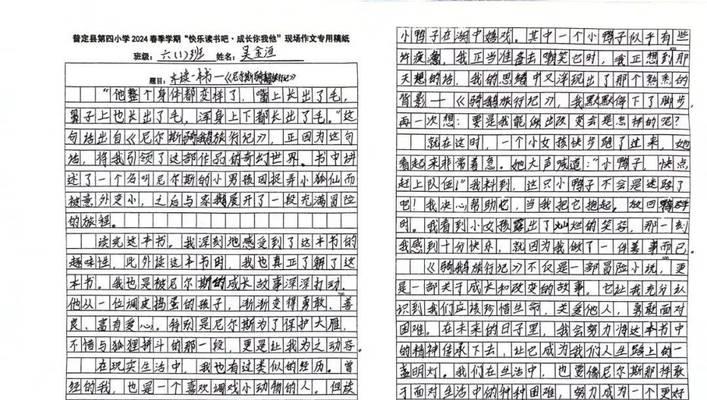 普定县第四小学2024春季学期“快乐读书吧·成长你我他”现场作文专用稿纸
班级：六(1)班 姓名：吴金渲
题目：读一本书—《尼尔斯骑鹅旅行记》
“他整个身体都变样了，嘴上长出了毛，
鼻子上也长出了毛，浑身上下都长出了毛。”这
句话出自《尼尔斯骑鹅旅行记》，正因为这句
话，将我引领了这部作品的奇幻世界。书中讲
述了一个名叫尼尔斯的小男孩因捉弄小狐仙而
被变小，之后与家鹅展开了一段充满冒险
的旅程。
读完这本书。我深刻地感受到了这本书的
趣味性，此外读这本书时，我也真正了解了这
本书。我也是被尼尔斯的成长故事深深打动。
他从一位调皮捣蛋的孩子，渐渐变得勇敢、善
良、富有爱心。特别是尼尔斯为了保护大雁
不惜与狐狸拼斗的那一段，更是让我为之动容
在现实生活中，我也有过类似的经历。曾
经的我，也是一个喜欢调戏小动物的人。但读
小鸭子在湖中嬉戏。其中一个小鸭子似乎有些
许疲惫。我正当准备去嘲笑它时，我正想到那
天想的话，我的思绪中又浮现出了那个熟悉的
背影——《骑鹅旅行记》，我默默停下了脚步，
再一次想：要是我能做出改变会是怎样的呢？
就在这时，一个小女孩快步跑了过来，她
看起来非常着急。她大声喊道：“小鸭子，快点
赶上队伍！”我料到，这只小鸭子不会是迷路了
吧！我决心帮助它，当我把它抱起。放回
时。我看到小女孩露出了灿烂的笑容，那一刻
我感到十分快乐，就因为我做了一件善事而已。
《骑鹅旅行记》不仅是一部冒险小说，更
是一部关于成长和改变的故事。它让我充分认
识到我们应该珍惜生命，关爱他人，勇敢面对
困难。在未来的日子里，我会努力将这本书中
的精神传承下去，让它成为我们人生路上的一
盏明灯。我们在生活中，也要像尼尔斯那样敢
于面对生活中的种种困难，努力成为一个更好